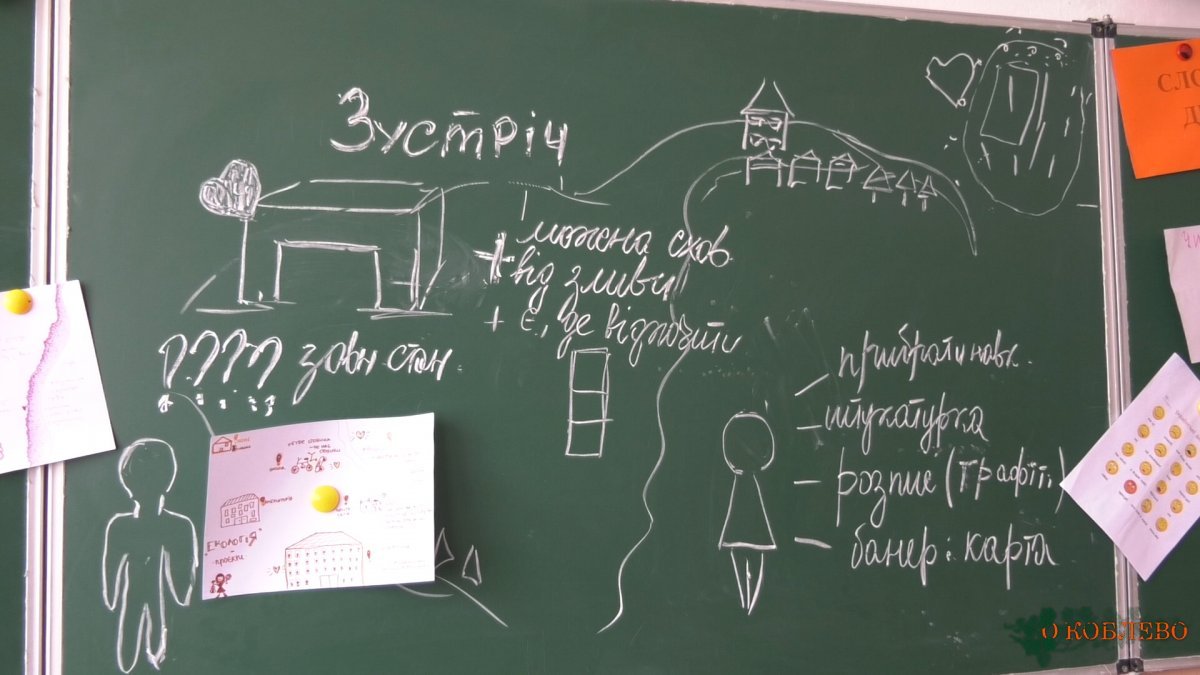 Зустріч
+ можна схов.
від зливи!!
+ є, де відпочити
???? зовн стан.
- прибрати навк.
- штукатурка
- розпис (графіті)
- банер: карта
"ЕКОЛОГІЯ"
проєкти
СЛО
Д
О КОБЛЕВО